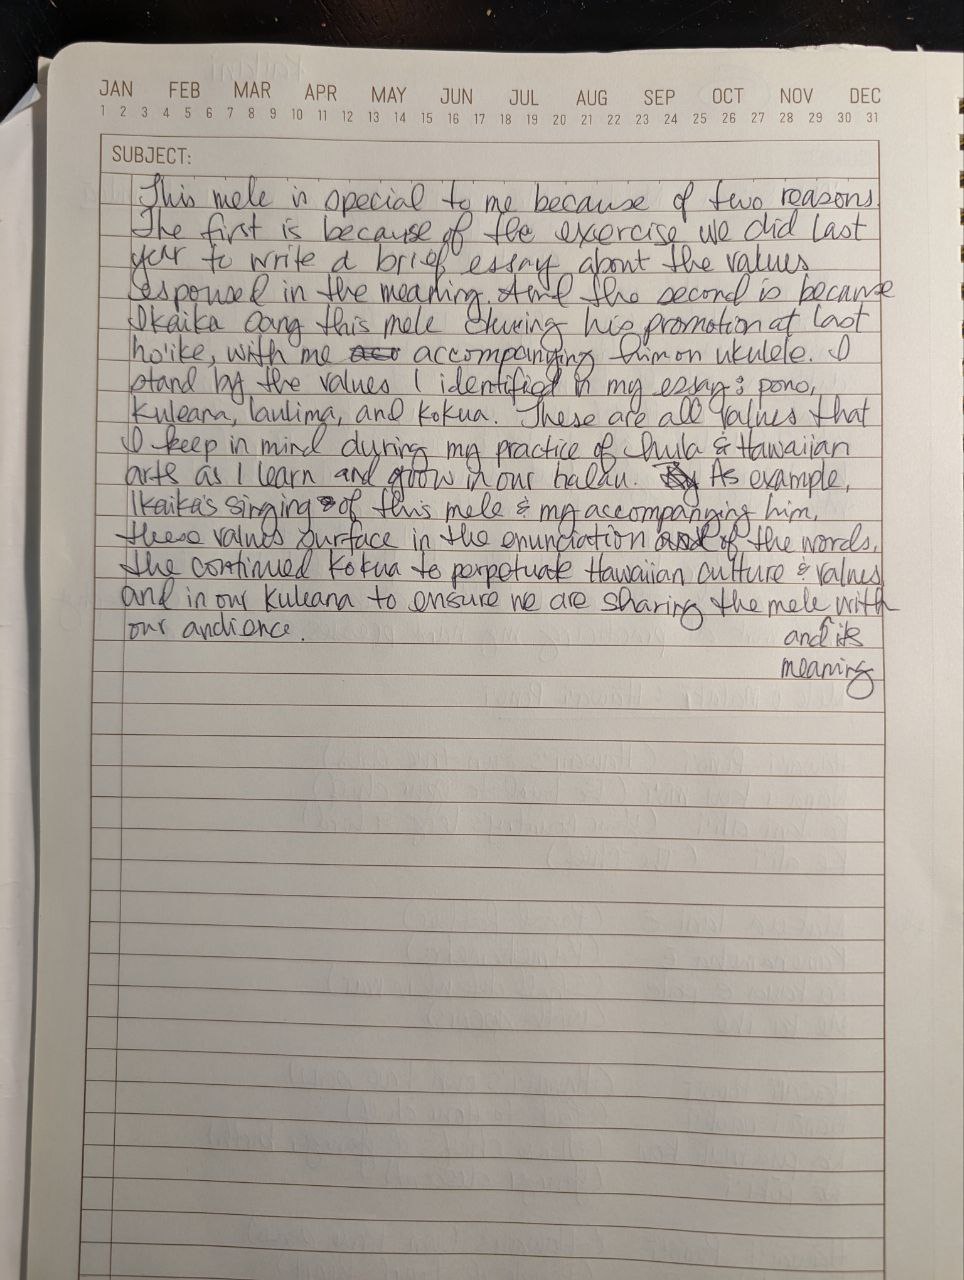 JAN FEB MAR APR MAY JUN JUL AUG SEP OCT NOV DEC
1 2 3 4 5 6 7 8 9 10 11 12 13 14 15 16 17 18 19 20 21 22 23 24 25 26 27 28 29 30 31
SUBJECT:
This mele is special to me because of two reasons.
The first is because of the exercise we did last
year to write a brief essay about the values
espoused in the meaning. And the second is because
Ikaika sang this mele during his promotion at last
ho'ike, with me accompanying him on ukulele. I
stand by the values I identified in my essay: pono,
kuleana, laulima, and kokua. These are all values that
I keep in mind during my practice of hula & Hawaiian
arts as I learn and grow in our halau. As example,
Ikaika's singing of this mele & my accompanying him,
these values surface in the enunciation of the words,
the continued kokua to perpetuate Hawaiian culture & values
and in our kuleana to ensure we are sharing the mele with
our audience. and its
meaning